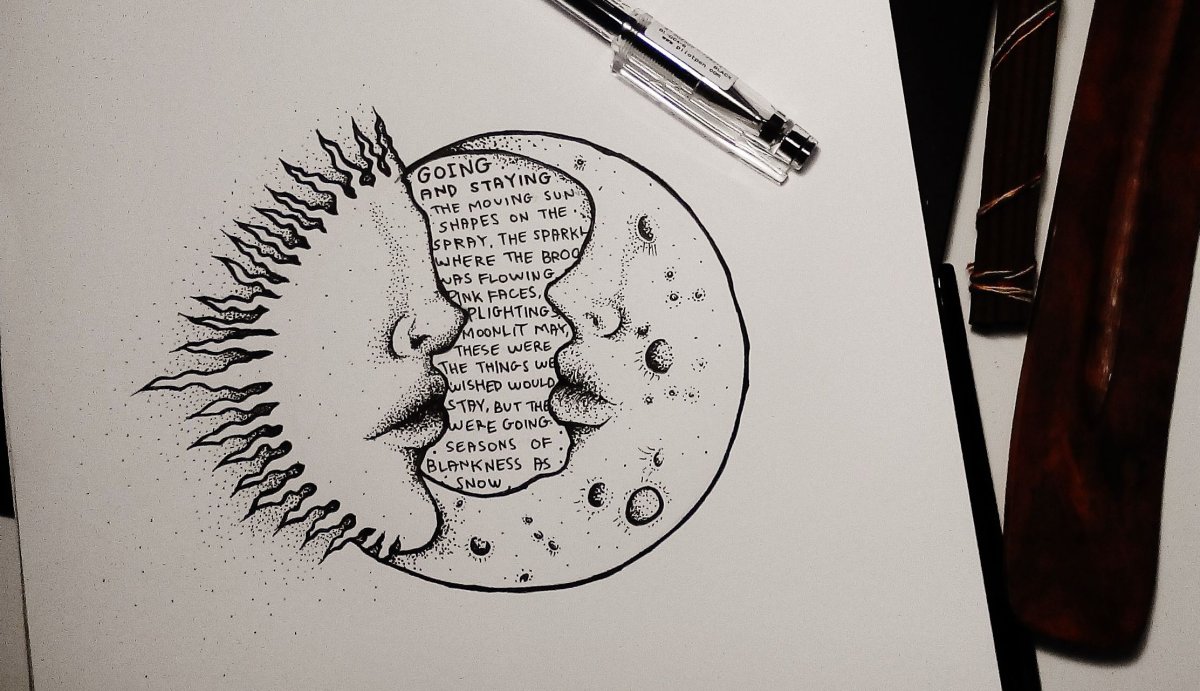 GOING
AND STAYING
THE MOVING SUN
SHAPES ON THE
SPRAY, THE SPARKL
WHERE THE BROO
WAS FLOWING
PINK FACES,
PLIGHTINGS
MOONLIT MAY,
THESE WERE
THE THINGS WE
WISHED WOULD
STAY, BUT THE
WERE GOING
SEASONS OF
BLANKNESS AS
SNOW
BLACK
www.pilotpen.com